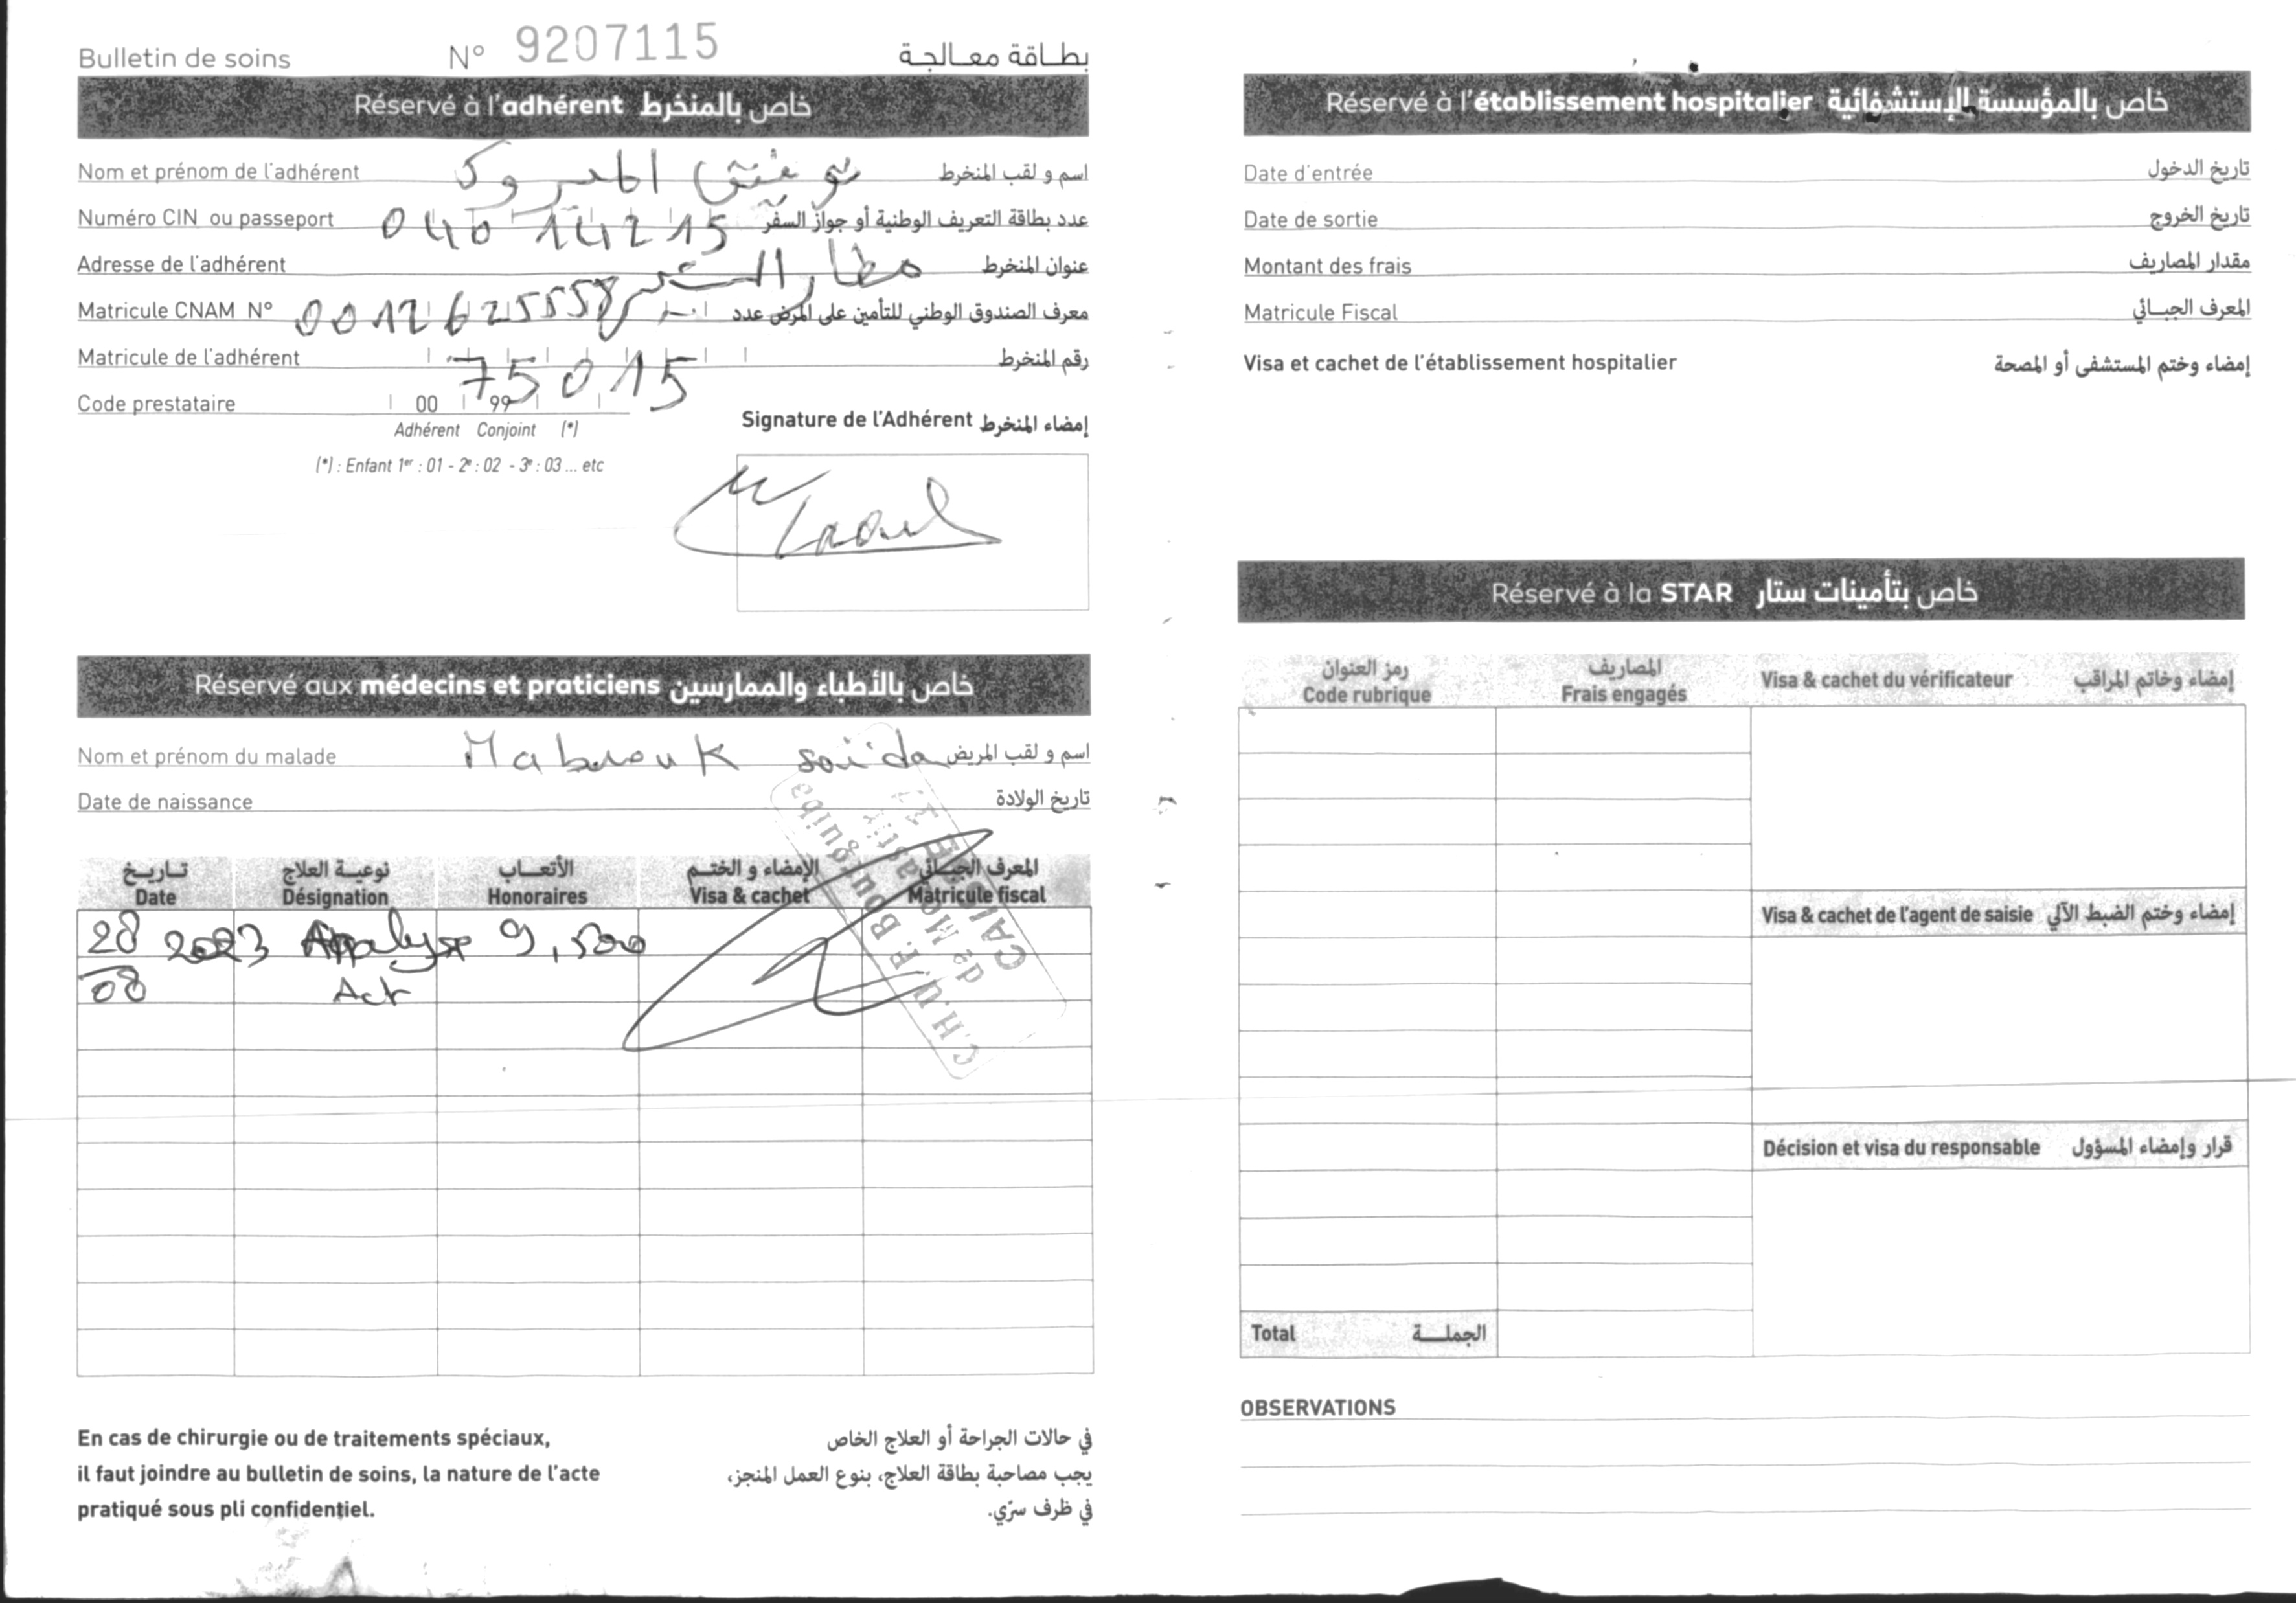 Bulletin de soins N° 9207115 بطاقة معالجة
Réservé à l'adhérent خاص بالمنخرط
Nom et prénom de l'adhérent توفيق المبروك اسم و لقب المنخرط
Numéro CIN ou passeport 04014215 عدد بطاقة التعريف الوطنية أو جواز السفر
Adresse de l'adhérent مطار عنوان المنخرط
Matricule CNAM N° 0012625558 معرف الصندوق الوطني للتأمين على المرض عدد
Matricule de l'adhérent 75015 رقم المنخرط
Code prestataire 00 99
Adhérent Conjoint (*)
(*) : Enfant 1er : 01 - 2e : 02 - 3e : 03 ... etc
Signature de l'Adhérent إمضاء المنخرط
Réservé aux médecins et praticiens خاص بالأطباء والممارسين
Nom et prénom du malade Mabrouk saïda اسم و لقب المريض
Date de naissance تاريخ الولادة
تاريخ نوعية العلاج الأتعاب الإمضاء و الختم المعرف الجبائي
Date Désignation Honoraires Visa & cachet Matricule fiscal
28 2023 Analyse 9,500
08
C.H.U. F. Bourguiba
de Monastir
En cas de chirurgie ou de traitements spéciaux,
il faut joindre au bulletin de soins, la nature de l'acte
pratiqué sous pli confidentiel.
في حالات الجراحة أو العلاج الخاص
يجب مصاحبة بطاقة العلاج، بنوع العمل المنجز،
في ظرف سرّي.
Réservé à l'établissement hospitalier خاص بالمؤسسة الإستشفائية
Date d'entrée تاريخ الدخول
Date de sortie تاريخ الخروج
Montant des frais مقدار المصاريف
Matricule Fiscal المعرف الجبائي
Visa et cachet de l'établissement hospitalier إمضاء وختم المستشفى أو المصحة
Réservé à la STAR خاص بتأمينات ستار
رمز العنوان المصاريف
Code rubrique Frais engagés Visa & cachet du vérificateur إمضاء وخاتم المراقب
Visa & cachet de l'agent de saisie إمضاء وختم الضبط الآلي
Décision et visa du responsable قرار وإمضاء المسؤول
Total الجملة
OBSERVATIONS